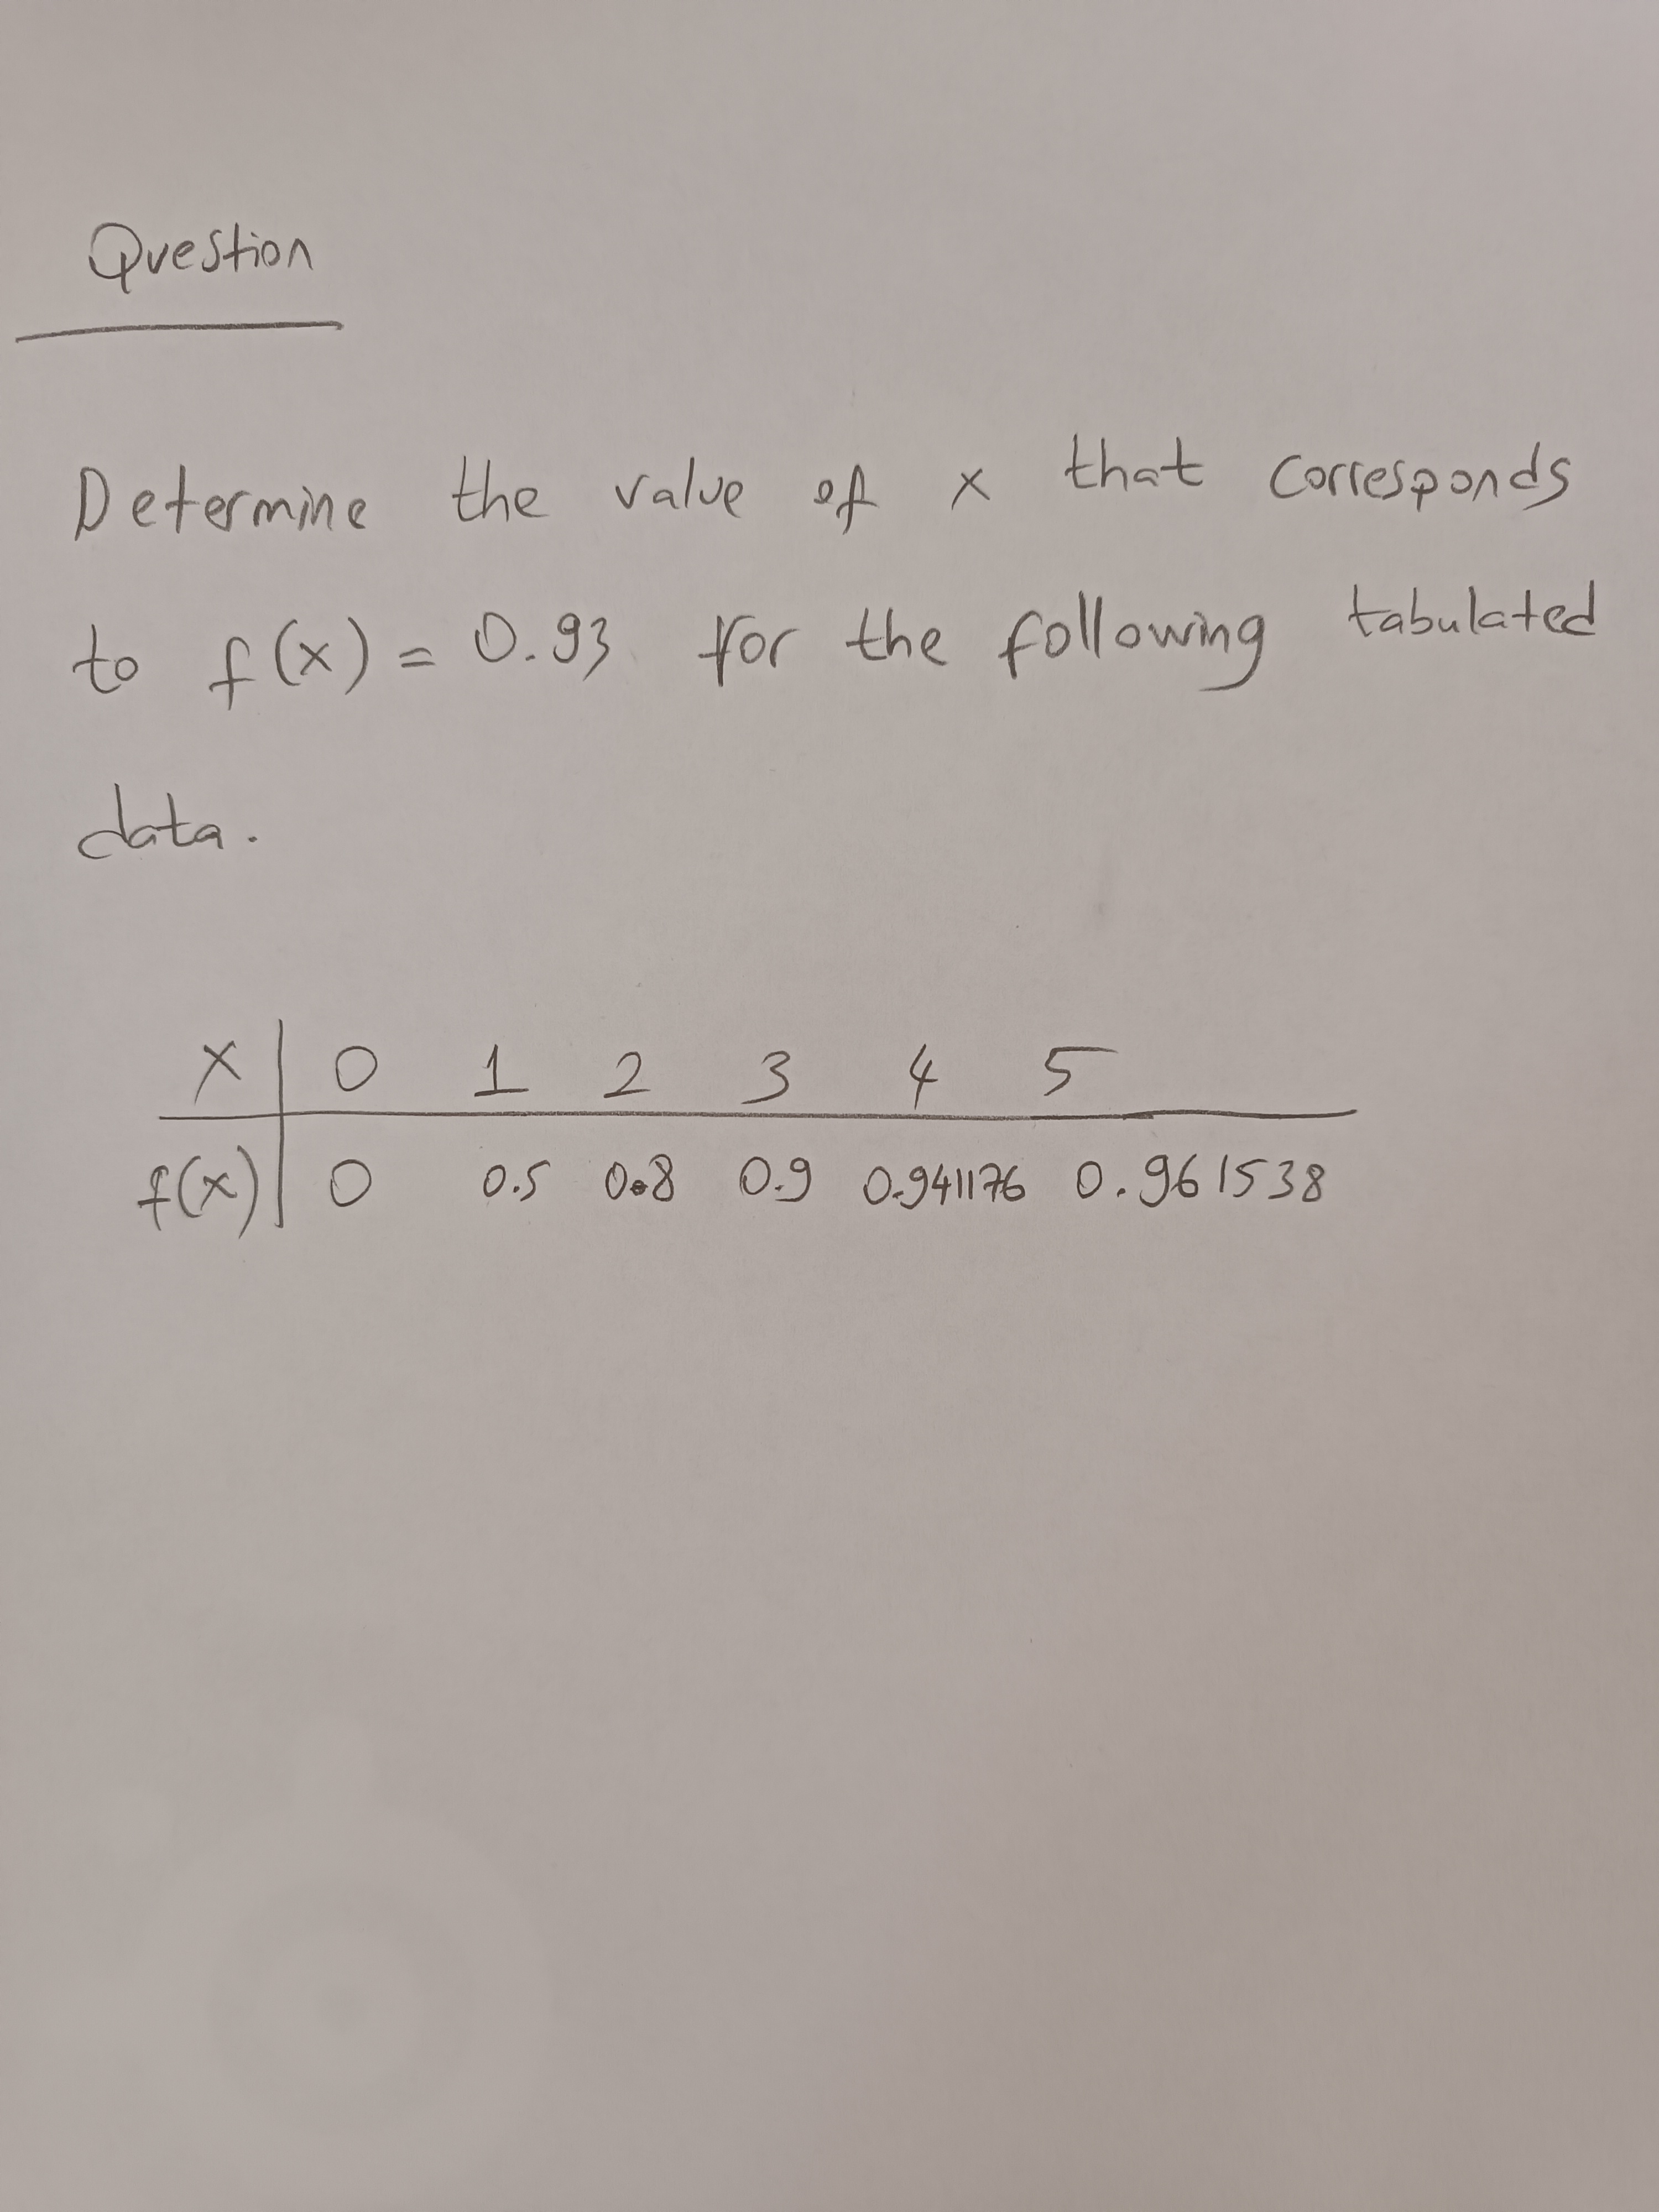 Question
Determine the value of x that corresponds
to f(x) = 0.93 for the following tabulated
data.
x | 0 1 2 3 4 5
f(x) | 0 0.5 0.8 0.9 0.941176 0.961538